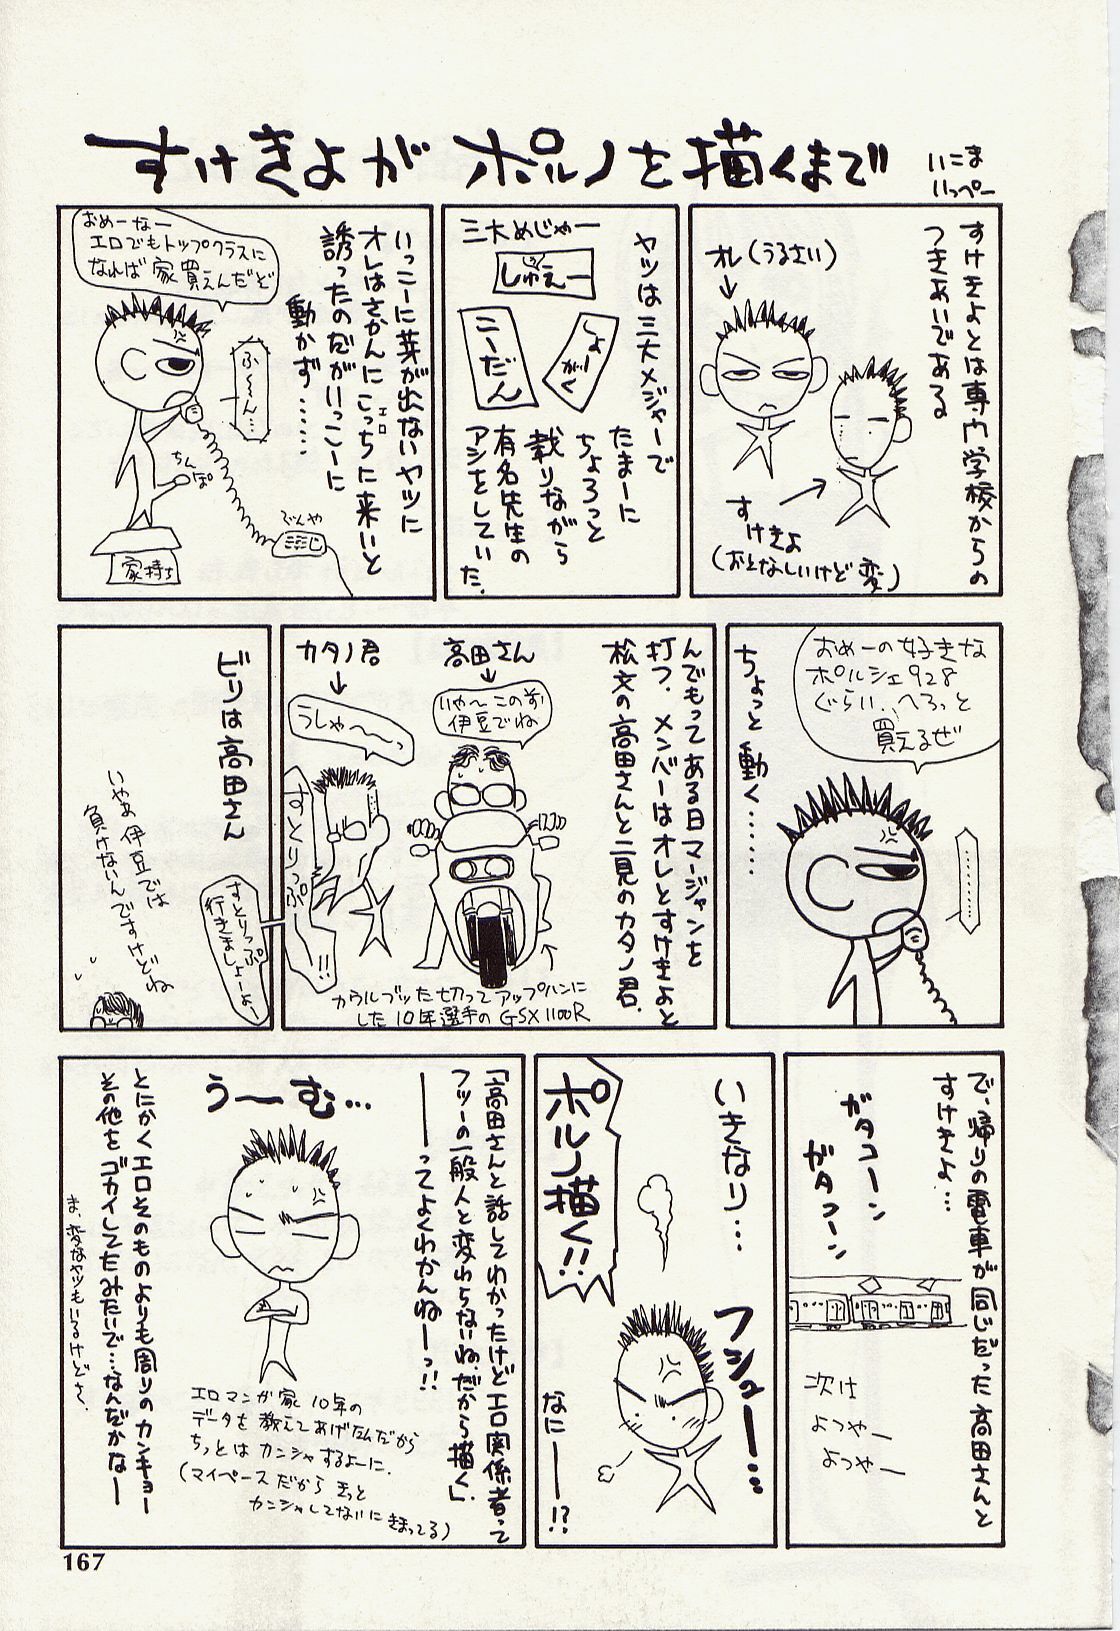 すけきよがポルノを描くまで
いこま
いっぺー
すけきよとは専門学校からの
つきあいである
オレ(うるさい)
すけきよ
(おとなしいけど変)
ヤツは三大メジャーで
たまーに
ちょろっと
載りながら
有名先生の
アシをしていた.
三大めじゃー
しゅえー
しょーがく
こーだん
いっこーに芽が出ないヤツに
オレはさかんにこっちに来いと
エロ
誘ったのだがいっこーに
動かず……
おめーなー
エロでもトップクラスに
なれば家買えんだど
ふ〜ん…
ちんぽ
でんや
家持ち
おめーの好きな
ポルシェ928
ぐらい、へろっと
買えるぜ
ちょっと動く……
………
んでもってある日マージャンを
打つ、メンバーはオレとすけきよと
松文の高田さんと二見のカタノ君.
高田さん
いや〜このまえ
伊豆でね
カタノ君
うしゃ〜〜っ
すとりっぷ!!
カウルブッた切ってアップハンに
した10年選手のGSX1100R
ビリは高田さん
すとりっぷ
行きましょーよー
いやぁ伊豆では
負けないんですけどね
で、帰りの電車が同じだった高田さんと
すけきよ…
ガタコーン
ガタコーン
次は
よつやー
よつやー
いきなり…
ポルノ描く!!
フシュー…
なにーー!?
「高田さんと話してわかったけどエロ関係者って
フツーの一般人と変わらないね.だから描く」.
――ってよくわかんねーっ!!
うーむ…
エロマンガ家10年の
データを教えてあげたんだから
ちっとはカンシャするよーに.
(マイペースだからきっと
カンシャしてないにきまってる)
とにかくエロそのものよりも周りのカンキョー
その他をゴカイしてたみたいで…なんだかなー
ま、変なヤツもいるけどさ、
167